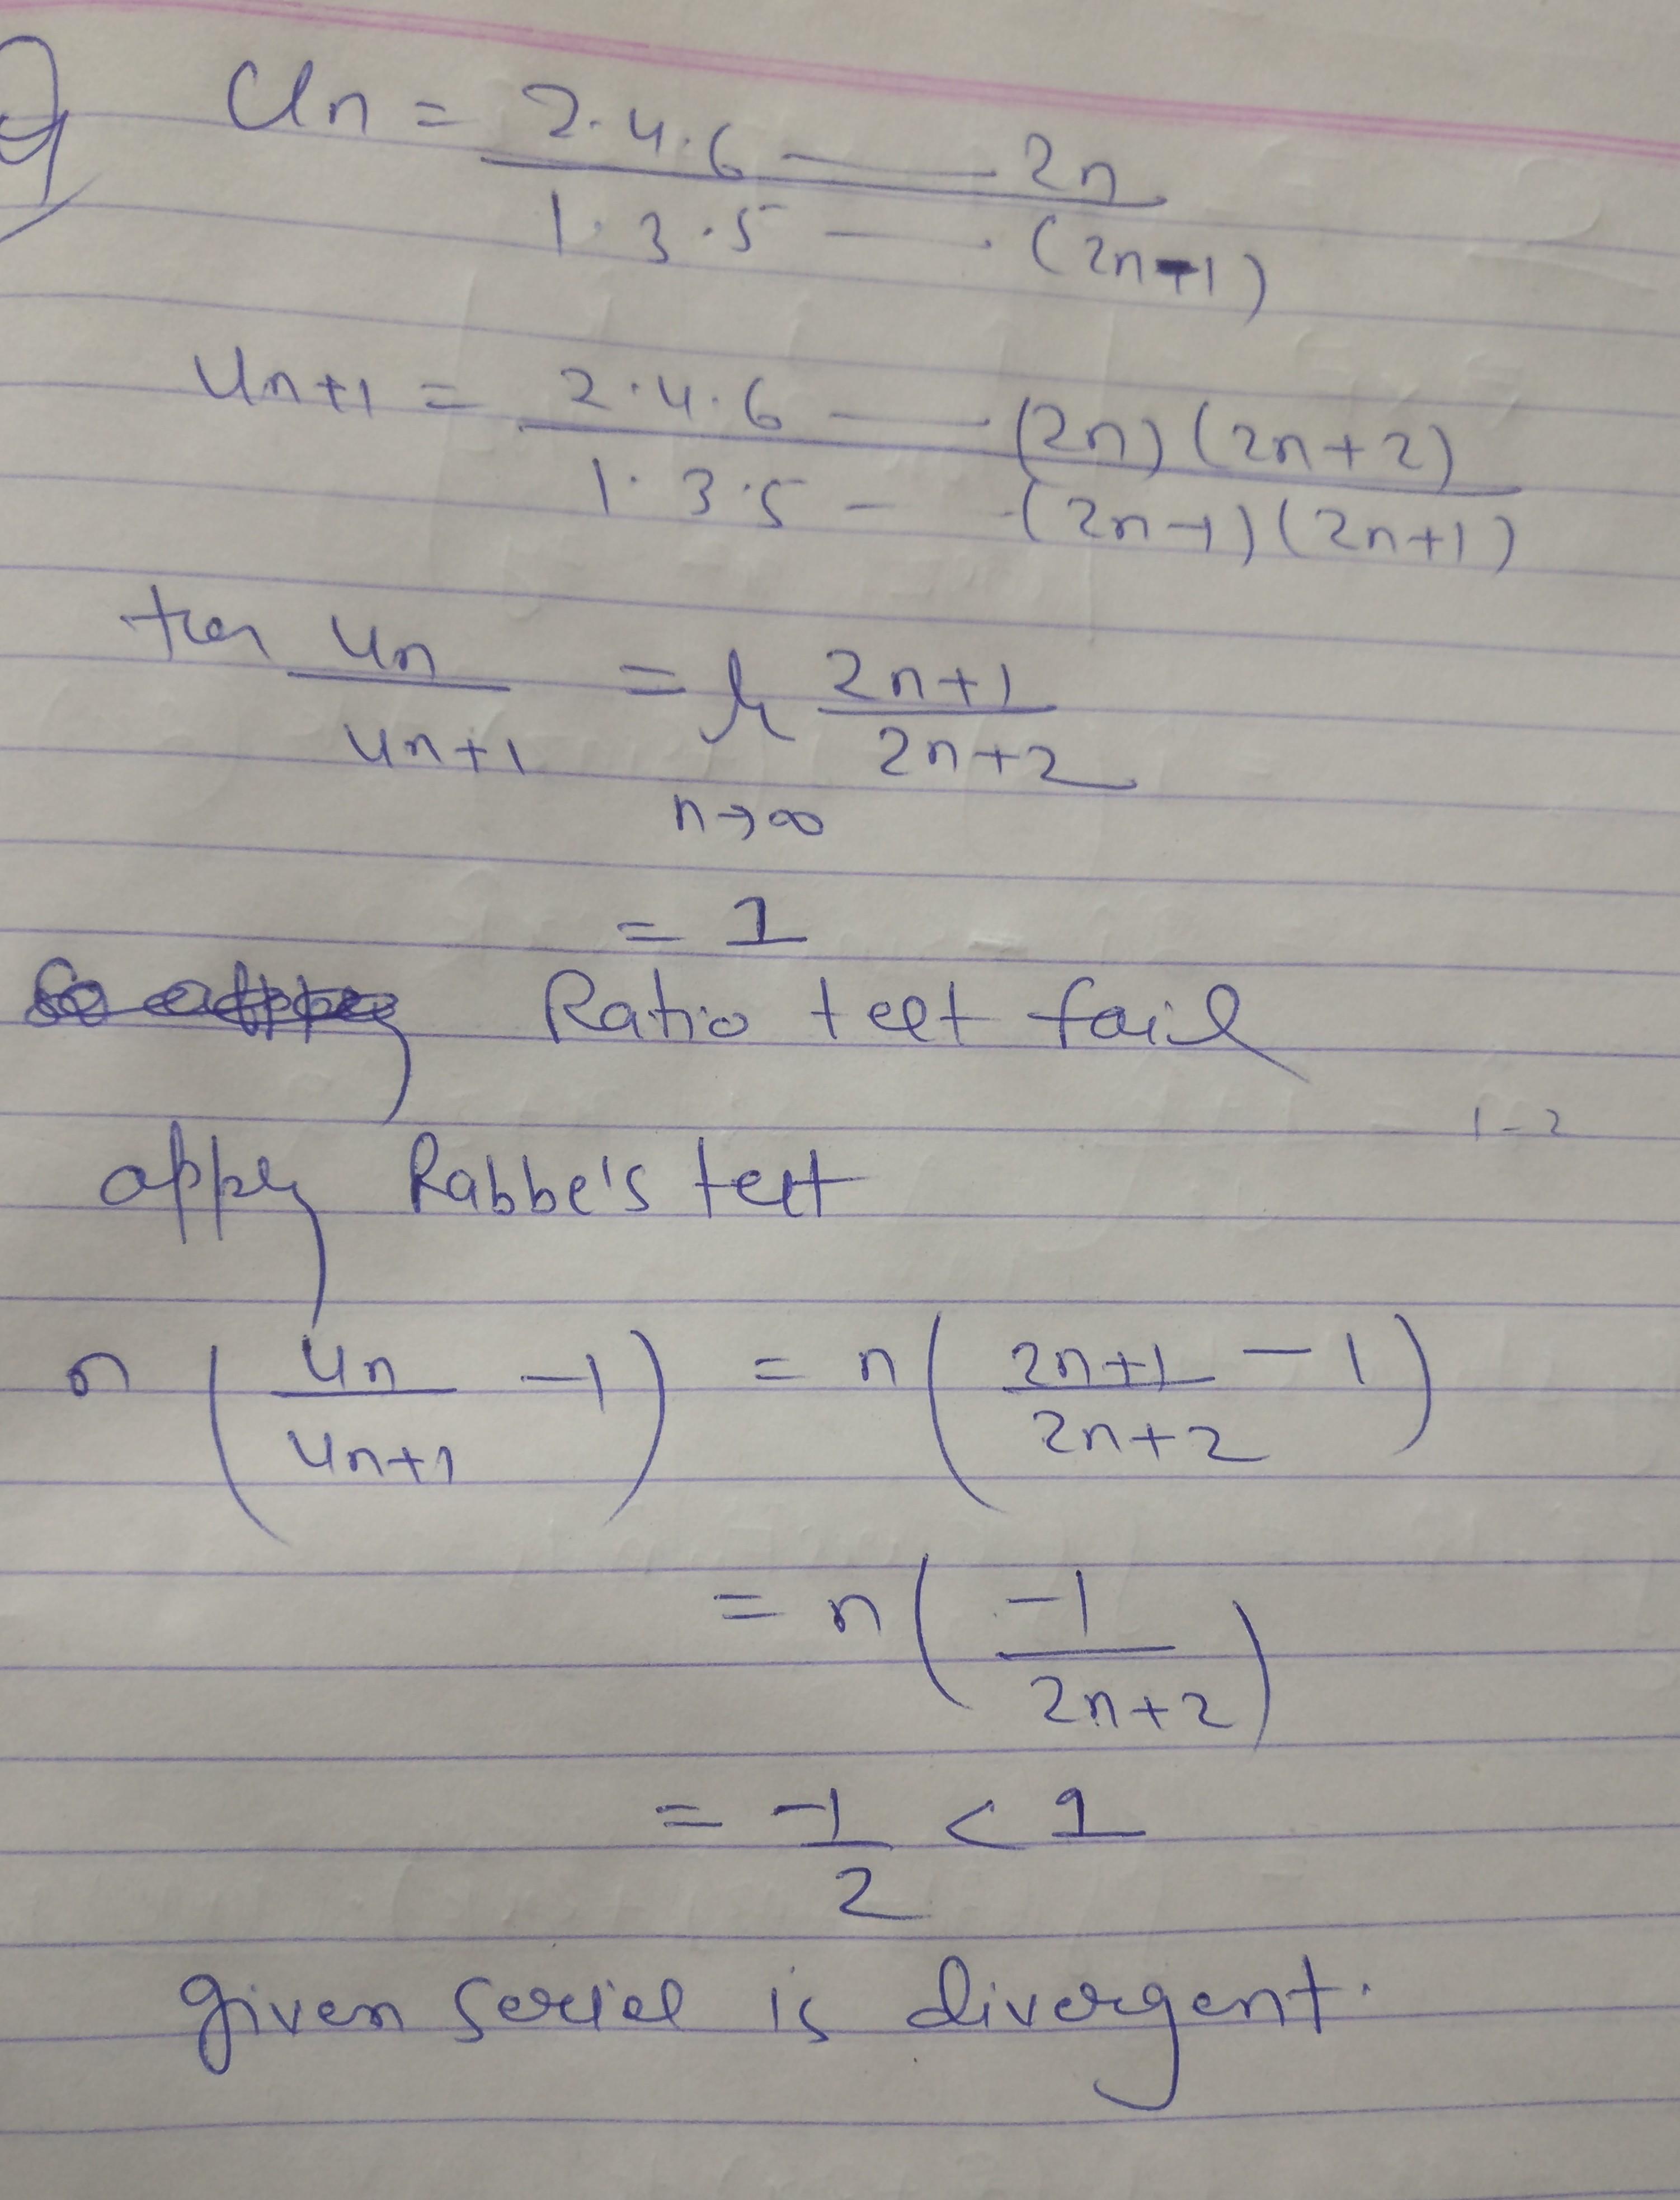 Un = 2.4.6 —— 2n / 1.3.5 —— (2n-1)
Un+1 = 2.4.6 —— (2n)(2n+2) / 1.3.5 - - (2n-1)(2n+1)
Un / Un+1 = lt n→∞ 2n+1 / 2n+2
= 1
Ratio test fail
1-2
apply Rabbe's test
n ( Un / Un+1 - 1 ) = n ( 2n+1 / 2n+2 - 1 )
= n ( -1 / 2n+2 )
= -1 / 2 < 1
given series is divergent.